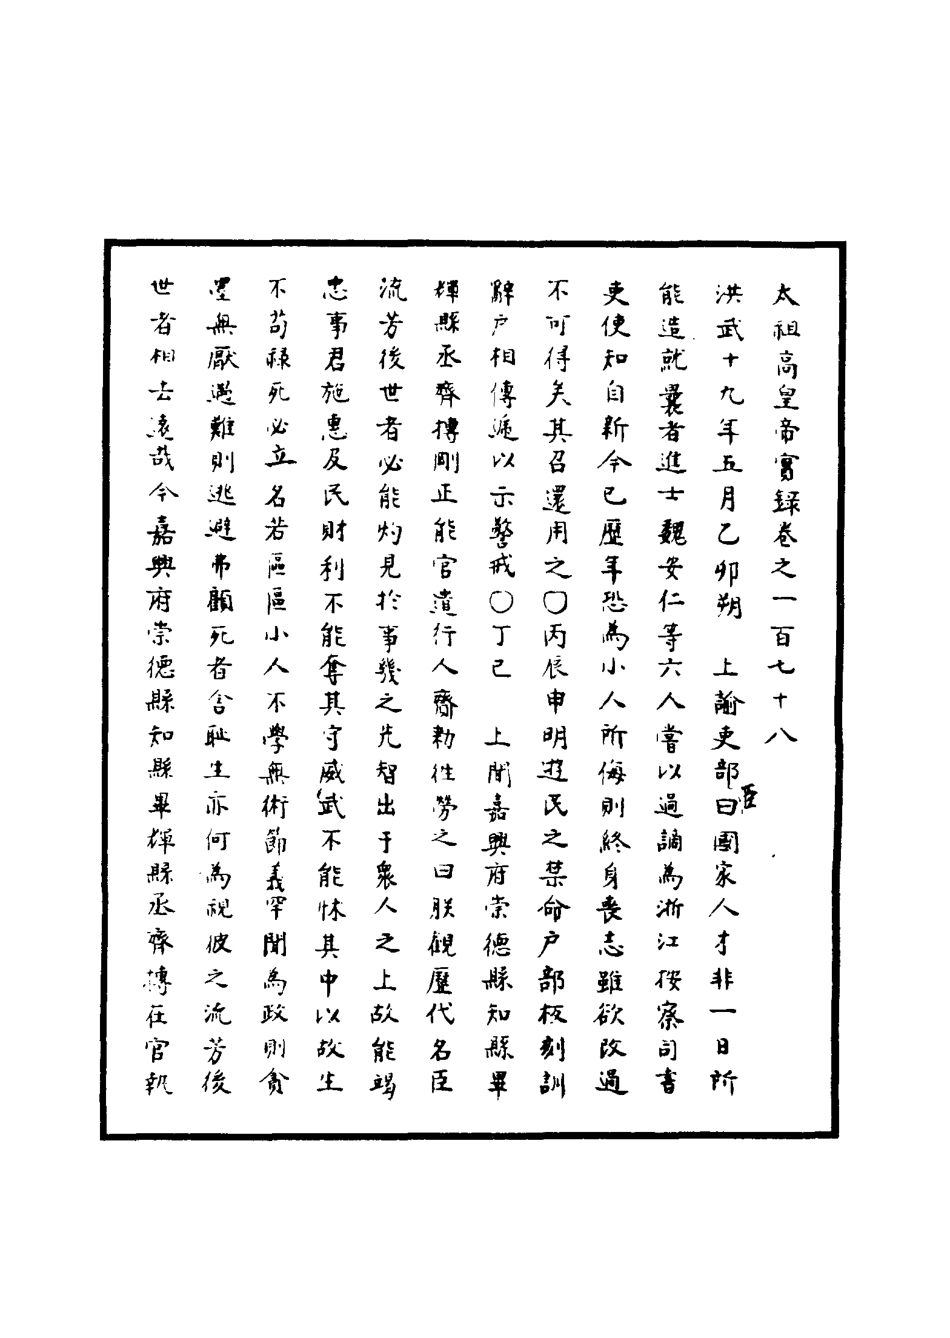 太祖高皇帝實録卷之一百七十八
洪武十九年五月乙卯朔　上諭吏部臣曰國家人才非一日所
能造就曩者進士魏安仁等六人嘗以過謫為浙江按察司書
吏使知自新今已歷年恐為小人所侮則終身喪志雖欲改過
不可得矣其召還用之○丙辰申明遊民之禁命户部板刻訓
辭户相傳遞以示警戒○丁巳　上聞嘉興府崇德縣知縣畢
輝縣丞齊摶剛正能官遣行人齎勑往勞之曰朕觀歷代名臣
流芳後世者必能灼見於事幾之先智出于衆人之上故能竭
忠事君施惠及民財利不能奪其守威武不能怵其中以故生
不苟祿死必立名若區區小人不學無術節義罕聞為政則貪
墨無厭遇難則逃避弗顧死者含耻生亦何為視彼之流芳後
世者相去遠哉今嘉興府崇德縣知縣畢輝縣丞齊摶在官執